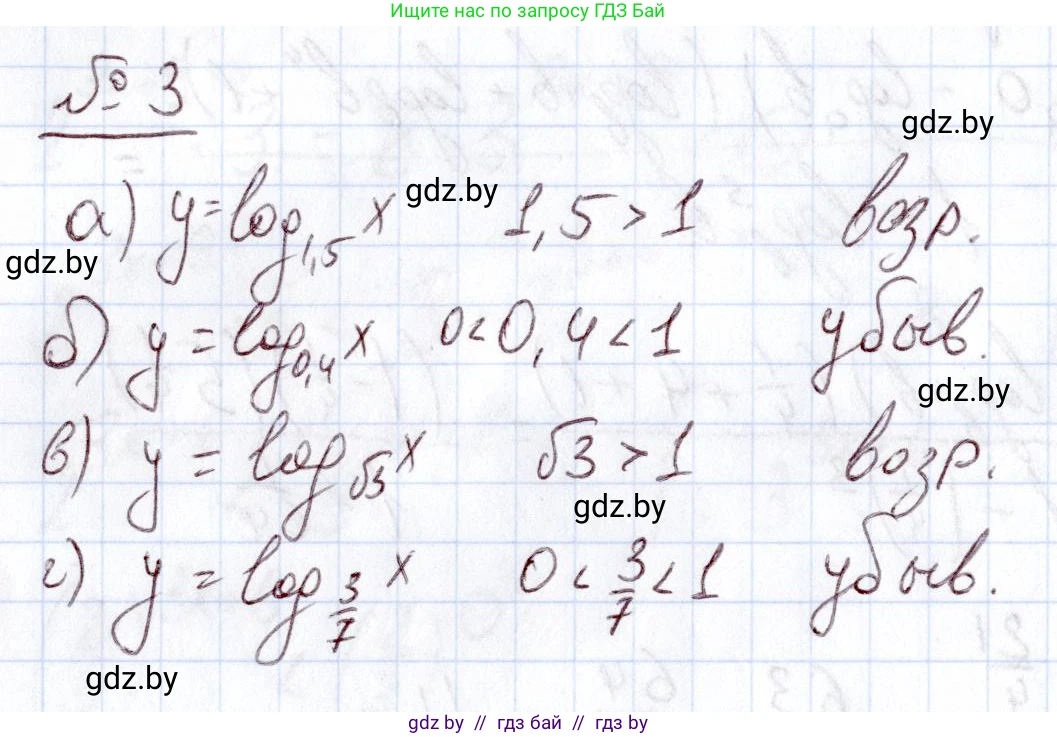 Ищите нас по запросу ГДЗ Бай
№ 3
gdz.by
а) y = log₁,₅ x gdz.by 1,5 > 1 возр.
gdz.by
б) y = log₀,₄ x 0 < 0,4 < 1 убыв.
gdz.by
в) y = log_√3 x √3 > 1 возр.
gdz.by
г) y = log_3/7 x 0 < 3/7 < 1 убыв.
gdz.by
gdz by // гдз бай // гдз by